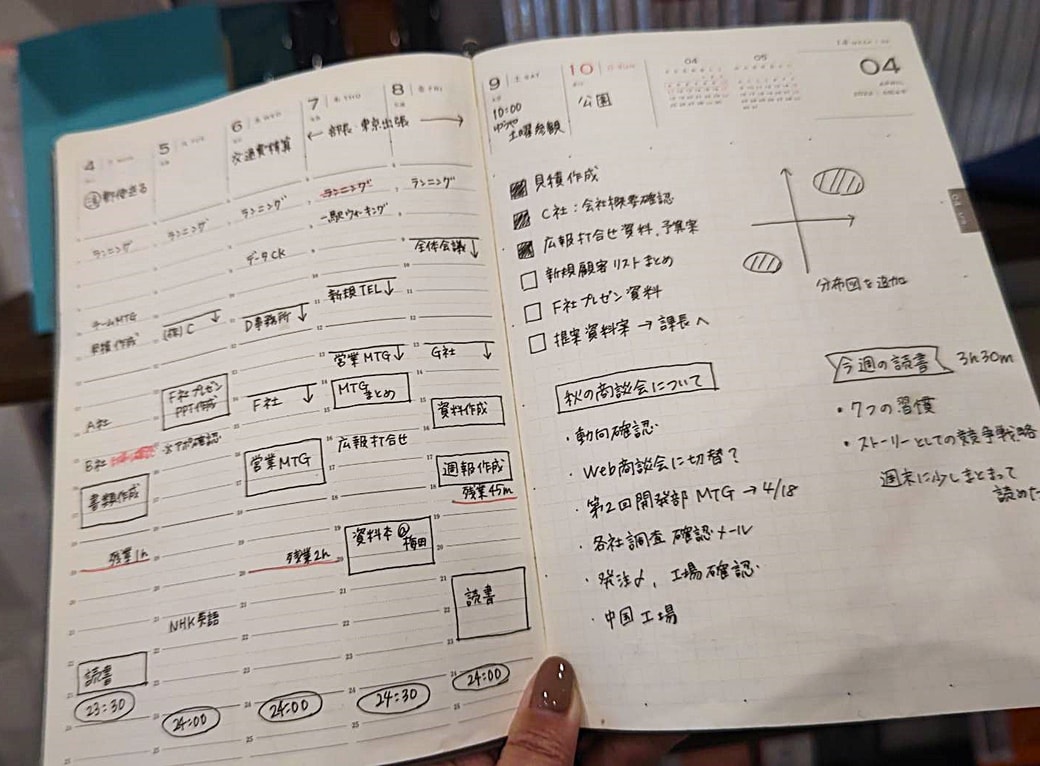 4
5
6
7
8
9
10
04
05
04
APRIL
済 郵便送る
交通費精算
← 部長・東京出張 →
10:00
土曜参観
公園
ランニング
ランニング
ランニング
ランニング
ランニング
一駅ウォーキング
データCK
全体会議↓
チームMTG
見積作成
(株)C ↓
D事務所↓
新規TEL↓
営業MTG↓
G社 ↓
A社
F社プレゼン
PPT作成
F社 ↓
MTG
まとめ
資料作成
B社
アポ確認
営業MTG
広報打合せ
週報作成
残業45m
書類作成
残業1h
残業2h
資料本@
梅田
NHK英語
読書
読書
23:30
24:00
24:00
24:30
24:00
見積作成
C社:会社概要確認
広報打合せ資料、予算案
新規顧客リストまとめ
F社プレゼン資料
提案資料案 → 課長へ
分布図を追加
秋の商談会について
・動向確認
・Web商談会に切替?
・第2回開発部MTG → 4/18
・各社調査 確認メール
・発注〆、工場確認
・中国工場
今週の読書 3h30m
・7つの習慣
・ストーリーとしての競争戦略
週末に少しまとまって
読めた